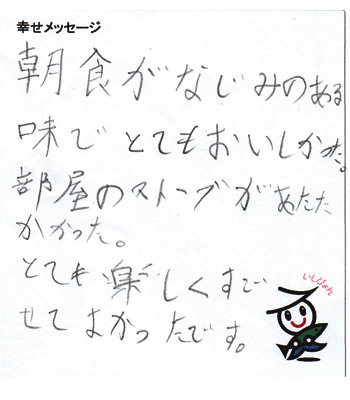 幸せメッセージ
朝食がなじみのある
味でとてもおいしかった。
部屋のストーブがあたた
かかった。
とても楽しくすご
せてよかったです。
いしぴょん